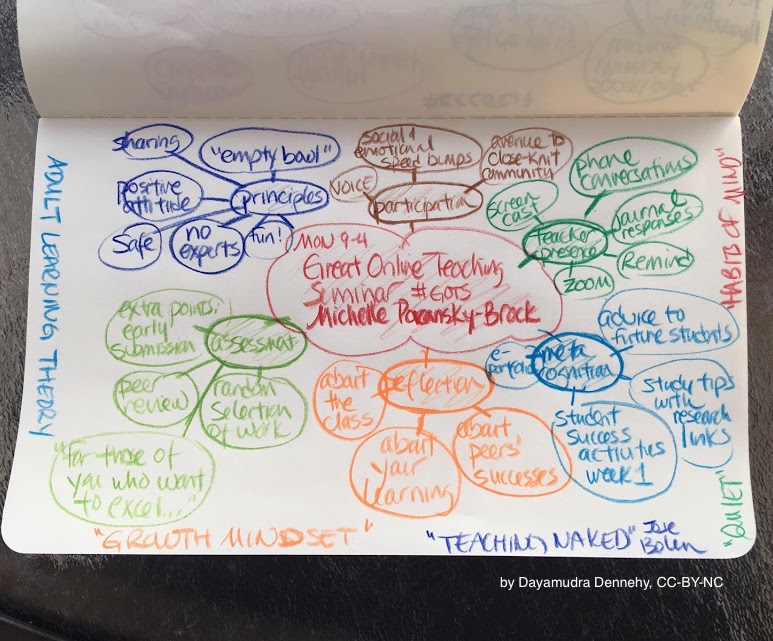 sharing
"empty bowl"
positive
attitude
principles
safe
no
experts
fun!
social &
emotional
speed bumps
avenue to
close-knit
community
VOICE
participation
screen
cast
phone
conversations
journal
responses
teacher
presence
Remind
ZOOM
MON 9-4
Great Online Teaching
Seminar #GOTS
Michelle Pacansky-Brock
extra points:
early
submission
assessment
peer
review
random
selection
of work
"for those of
you who want
to excel..."
reflection
about
the
class
about
your
learning
about
peers'
successes
e-
portfolio
meta
cognition
advice to
future students
study tips
with
research
links
student
success
activities
week 1
ADULT LEARNING THEORY
HABITS OF MIND"
"QUIET"
"GROWTH MINDSET"
"TEACHING NAKED"
Jose
Bowen
by Dayamudra Dennehy, CC-BY-NC